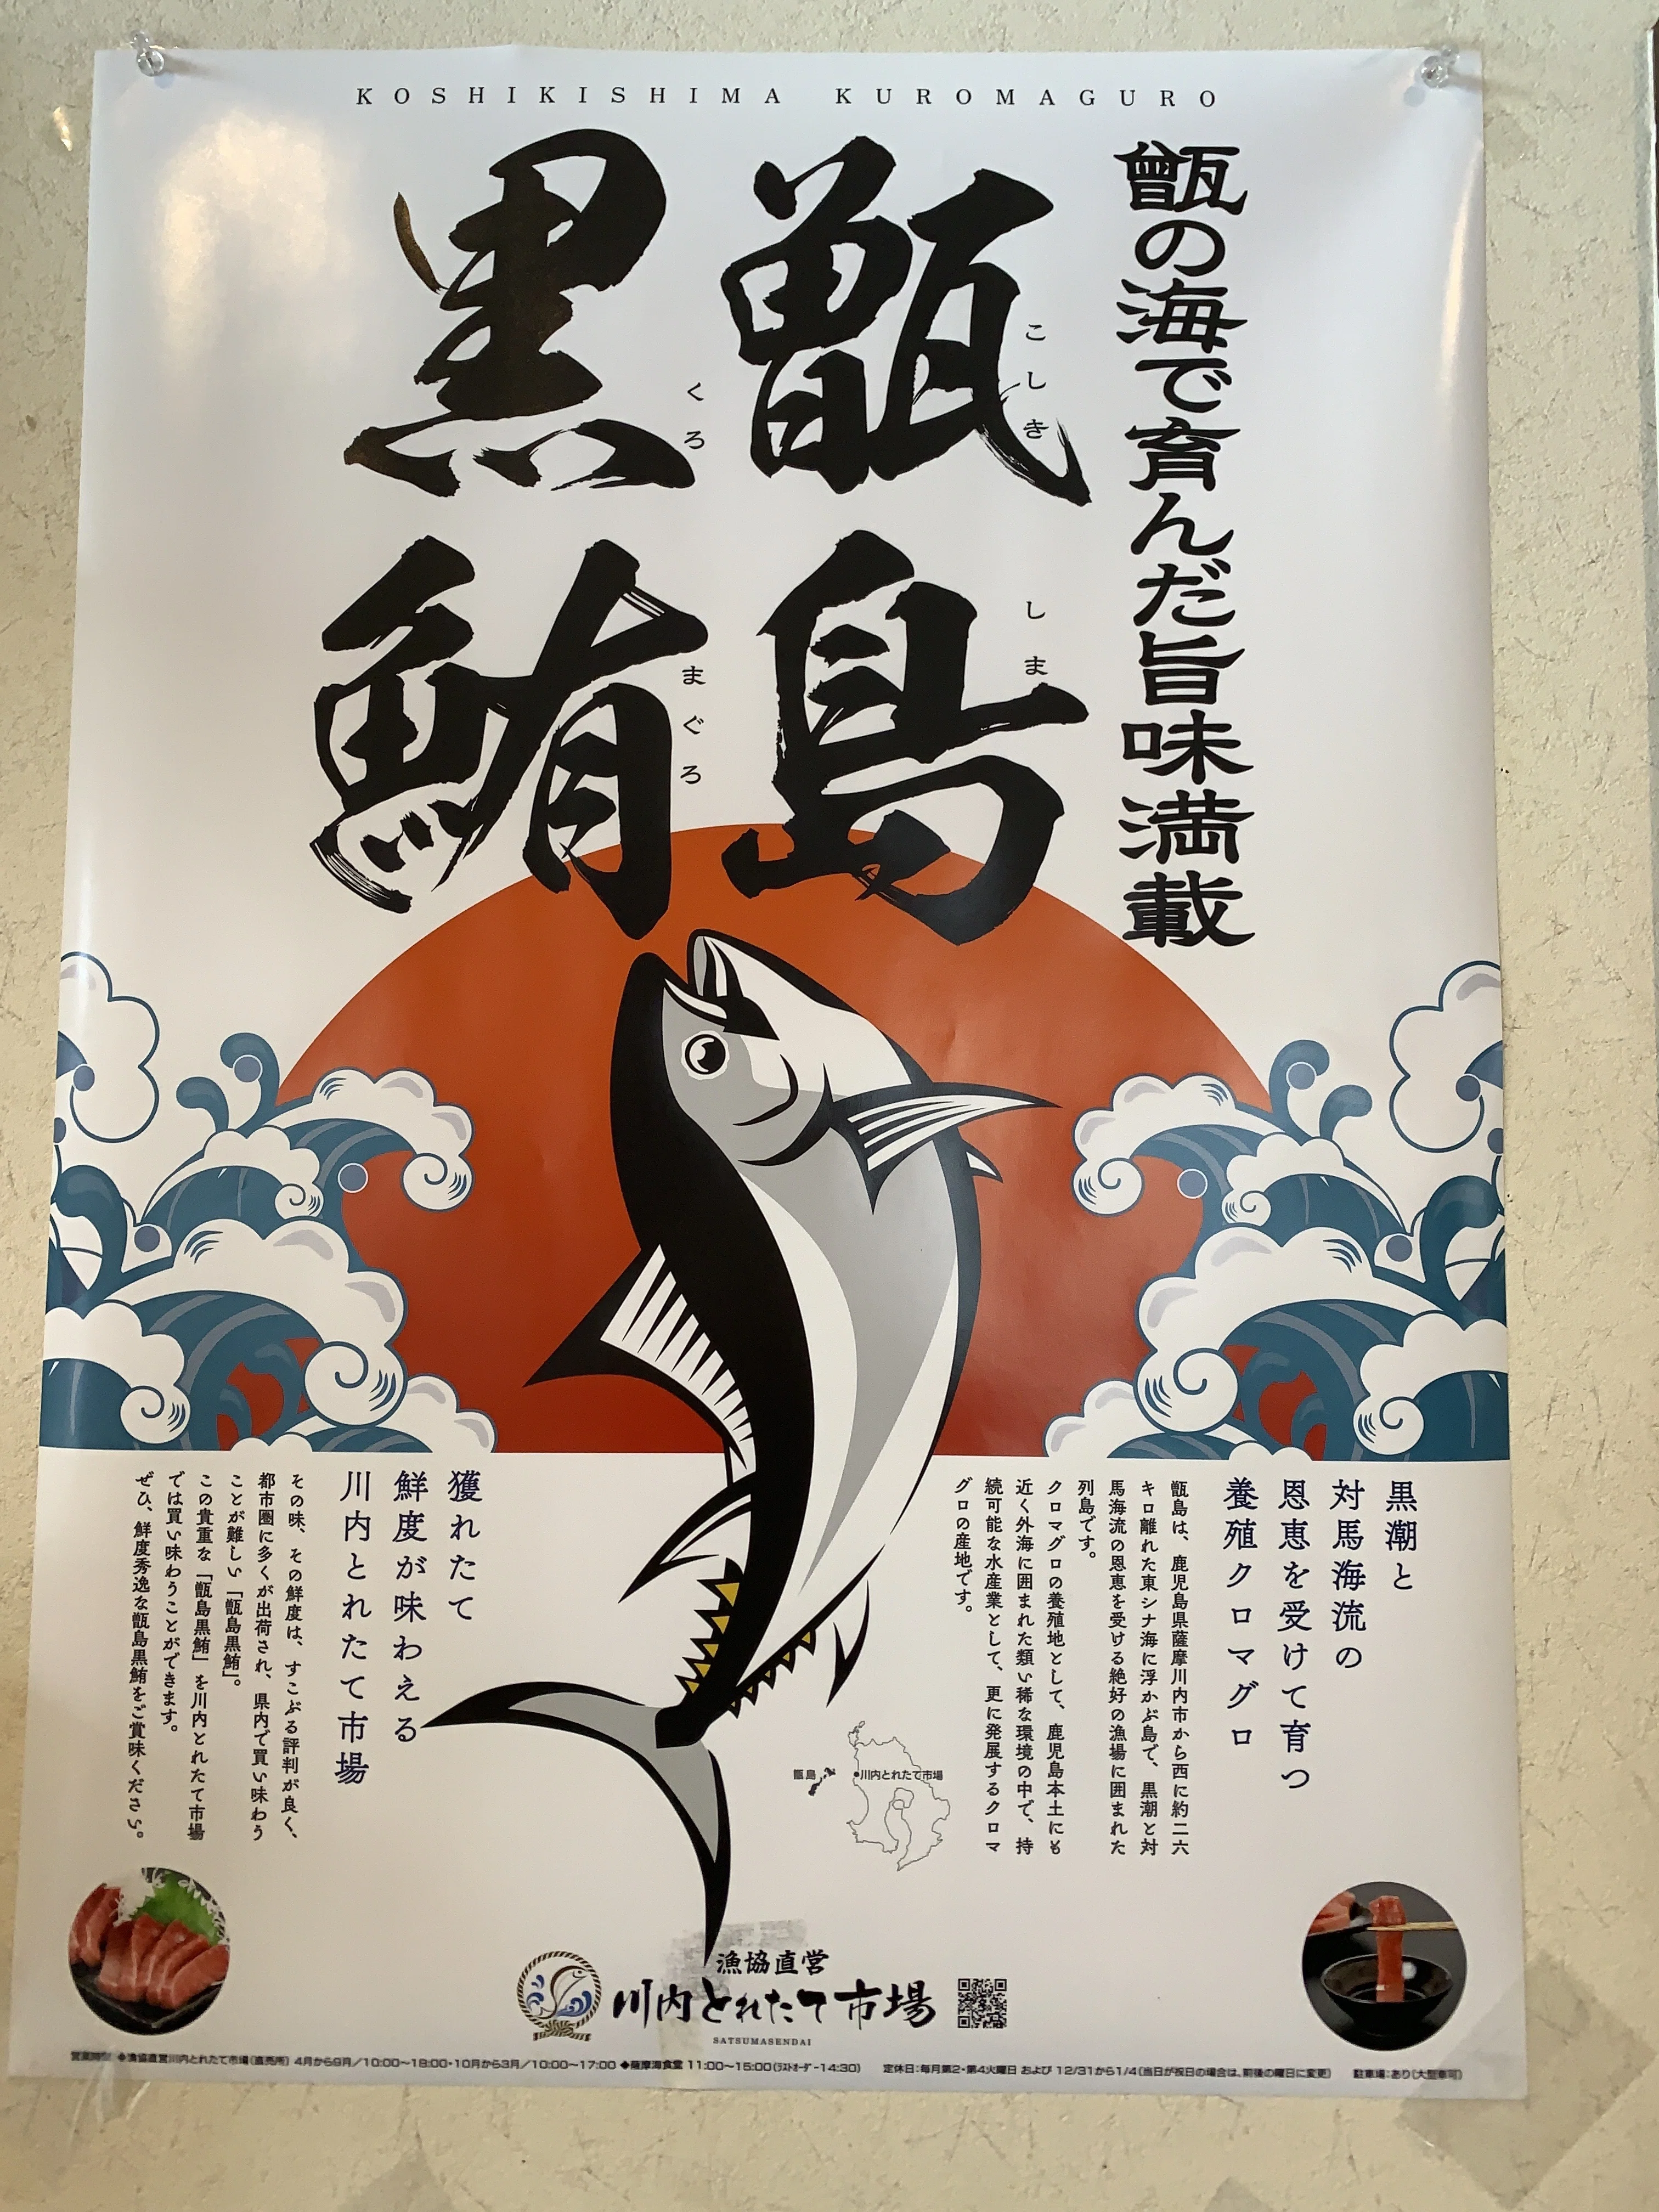 KOSHIKISHIMA KUROMAGURO
甑の海で育んだ旨味満載
甑島
こしき
しま
黒鮪
くろ
まぐろ
黒潮と
対馬海流の
恩恵を受けて育つ
養殖クロマグロ
甑島は、鹿児島県薩摩川内市から西に約二六
キロ離れた東シナ海に浮かぶ島で、黒潮と対
馬海流の恩恵を受ける絶好の漁場に囲まれた
列島です。
クロマグロの養殖地として、鹿児島本土にも
近く外海に囲まれた類い稀な環境の中で、持
続可能な水産業として、更に発展するクロマ
グロの産地です。
獲れたて
鮮度が味わえる
川内とれたて市場
その味、その鮮度は、すこぶる評判が良く、
都市圏に多くが出荷され、県内で買い味わう
ことが難しい「甑島黒鮪」。
この貴重な「甑島黒鮪」を川内とれたて市場
では買い味わうことができます。
ぜひ、鮮度秀逸な甑島黒鮪をご賞味ください。
甑島
●川内とれたて市場
漁協直営
川内とれたて市場
SATSUMASENDAI
営業時間 ◆漁協直営川内とれたて市場(直売所) 4月から9月/10:00〜18:00・10月から3月/10:00〜17:00 ◆薩摩海食堂 11:00〜15:00(ラストオーダー14:30) 定休日:毎月第2・第4火曜日 および 12/31から1/4(当日が祝日の場合は、前後の曜日に変更) 駐車場:あり(大型車可)